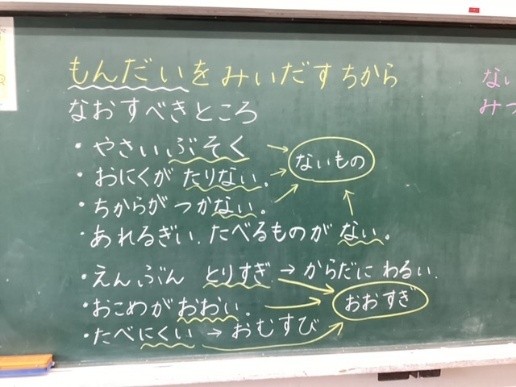 もんだいをみいだすちから
なおすべきところ
・やさいぶそく → ないもの
・おにくが たりない。→
・ちからが つかない。→
・あれるぎい、たべるものが ない。
・えんぶん とりすぎ → からだに わるい。
・おこめが おおい。→ おおすぎ
・たべにくい → おむすび
ない
みつ